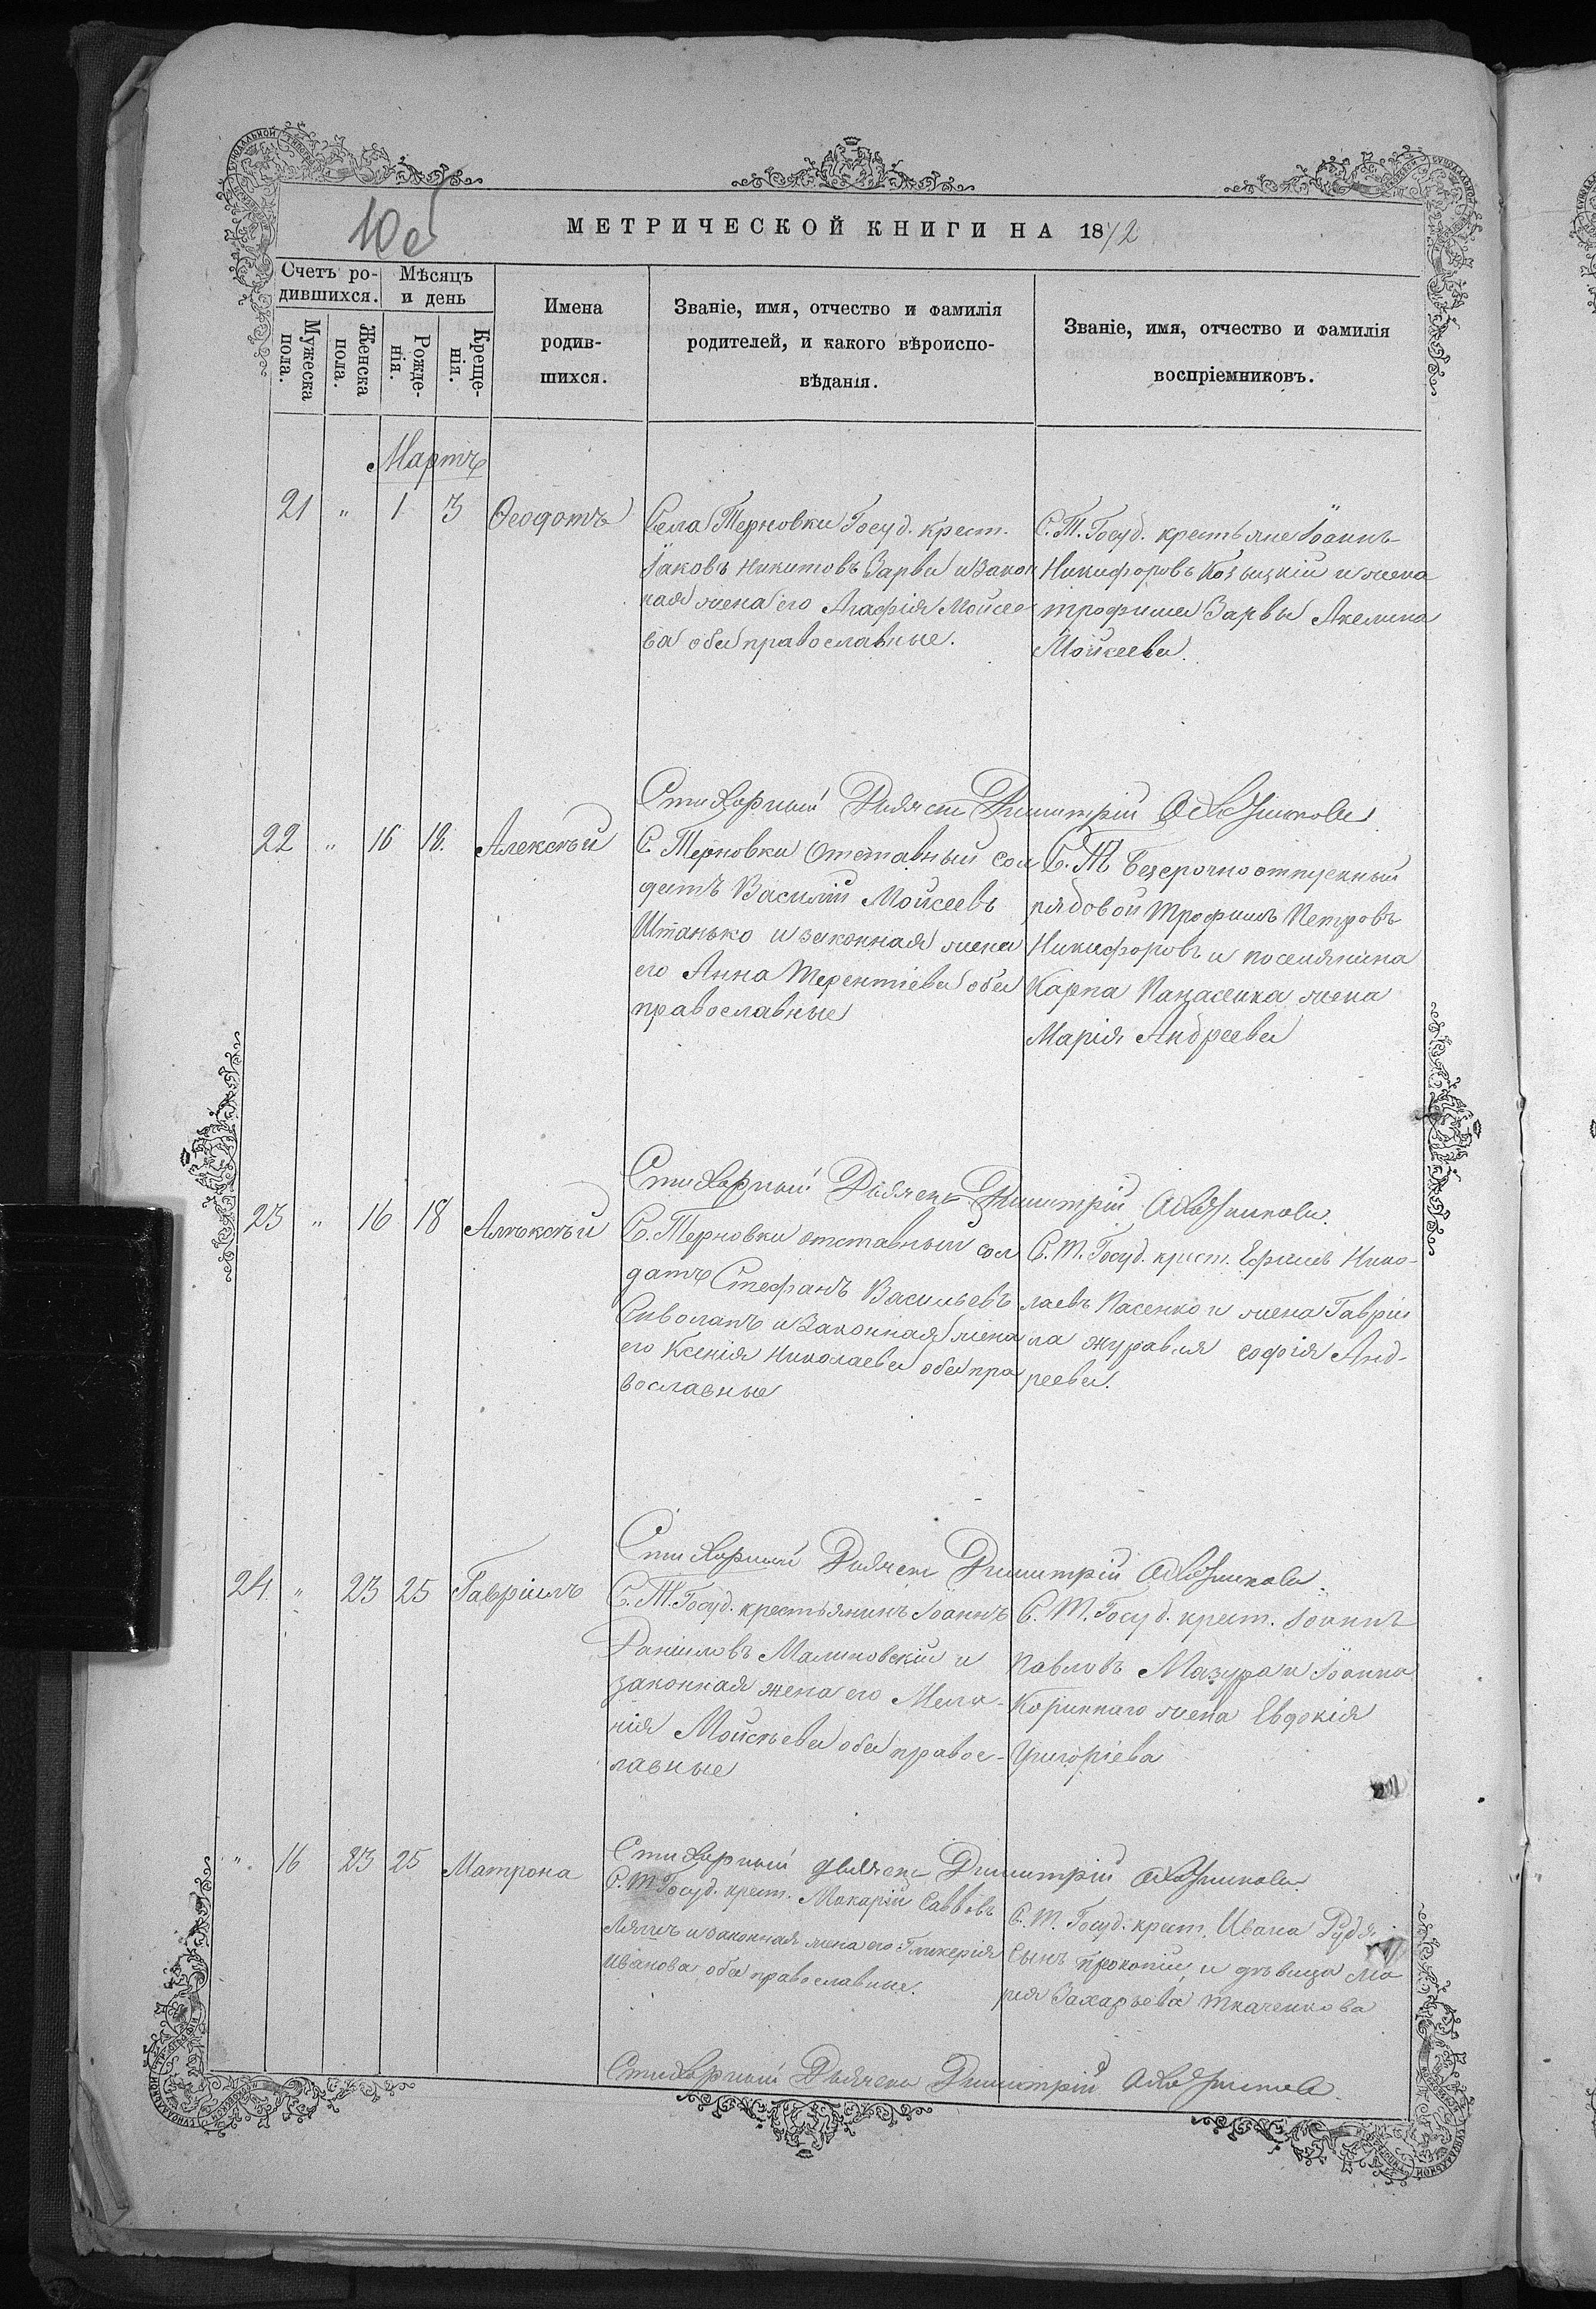 МЕТРИЧЕСКОЙ КНИГИ НА 1872
Счетъ ро-
дившихся.
Мѣсяцъ
и день
Мужеска
пола.
Женска
пола.
Рожде-
нія.
Креще-
нія.
Имена
родив-
шихся.
Званіе, имя, отчество и фамилія
родителей, и какого вѣроиспо-
вѣданія.
Званіе, имя, отчество и фамилія
воспріемниковъ.
Мартъ
21 " 1 3 Ѳеодотъ
Села Терновки Госуд. крест.
Іаковъ Никитовъ Варва и Закон
ная жена его Агафія Мойсее
ва оба православные.
С. Т. Госуд. крестьяне Іоаннъ
Никифоровъ Козыцкій и жена
трофима Варвы Акелина
Мойсеева.
Стихарный Дьячекъ Димитрій
22 " 16 18. Алексѣй
С. Терновки Отставный сол
датъ Василій Мойсеевъ
Штанько и законная жена
его Анна Терентіева оба
православные
С. Т. безсрочноотпускный
рядовой Трофимъ Петровъ
Никифоровъ и поселянина
Карпа Панасенка жена
Марія Андреева
Стихарный Дьячекъ Димитрій
23 " 16 18 Алѣксѣй
С. Терновки отставный сол
датъ Стефанъ Васильевъ
Сиволапъ и Законная жена
его Ксенія Николаева оба пра
вославные
С. Т. Госуд. крест. Ефимъ Нико-
лаевъ Пасенко и жена Гаврiи
ла журавля софія Анд-
реева.
Стихарный Дьячекъ Димитрій
24 " 23 25 Гавріилъ
С. Т. Госуд. крестьянинъ Іоаннъ
Даніиловъ Малиновскій и
законная жена его Мела-
нія Мойсѣева оба правос-
лавные
С. Т. Госуд. крест. Іоаннъ
Павловъ Мазура и Іоанна
жена Евдокія
Григоріева
Стихарный дьячекъ Димитрій
" 16 23 25 Матрона
С. Т. Госуд. крест. Макарій Саввовъ
и законная жена его Гликерія
Иванова оба православные.
С. Т. Госуд. крест. Ивана Рудя
Сынъ Прокопій и дѣвица Ма
рія Захарьева Ткаченкова
Стихарный Дьячекъ Димитрій